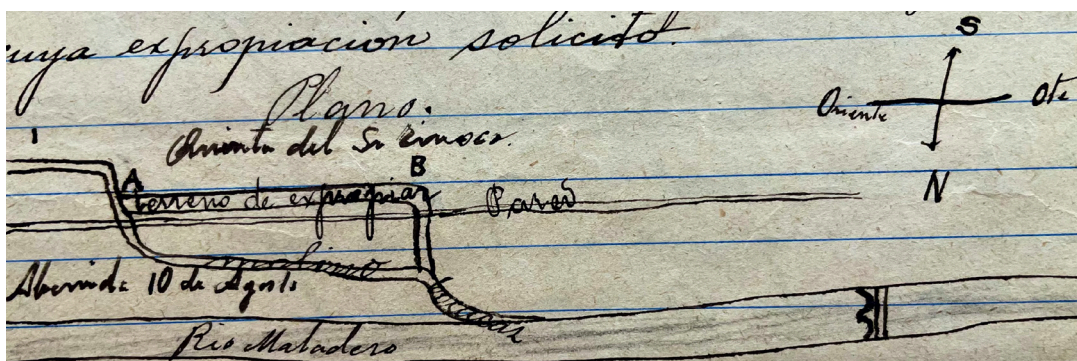 uya expropiación solicito.
S
Plano.
Oriente Ote
I
Quinta del Sr
B
A
terreno de expropiar Pared
N
molino
Abenida 10 de Agosto
Rio Matadero